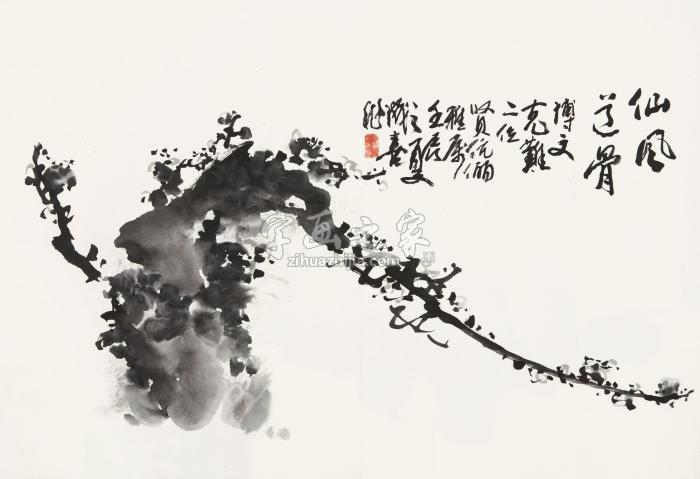 仙风
道骨
博文
克难
二位
贤伉俪
雅属
壬辰
之夏
字画之家
zihuazhijia.com